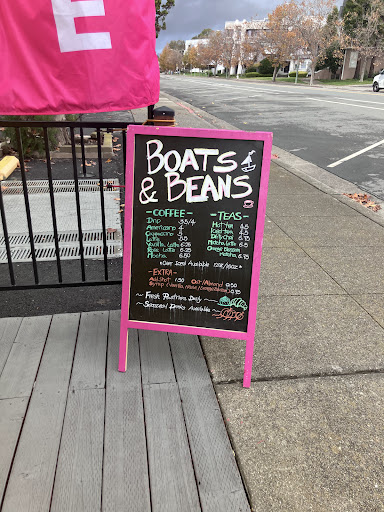 E
BOATS
& BEANS
- COFFEE -
Drip 3.5/4
Americano 4
Cappuccino 5
Latte
Vanilla Latte 6.25
Rose Latte 6.25
Mocha 6.50
- TEAS -
Hot Tea 4.5
Iced Tea 4.5
Dirty Chai 6.75
Matcha Latte 6.5
Orange Blossom
Matcha 6.75
*One Sized Available 12oz/16oz*
- EXTRA -
Add Shot 1.50
Oat/Almond 0.50
Syrup (Vanilla/Rose/Orange Blossom) 0.75
~ Fresh Pastries Daily
~ Seasonal Drinks Available ~